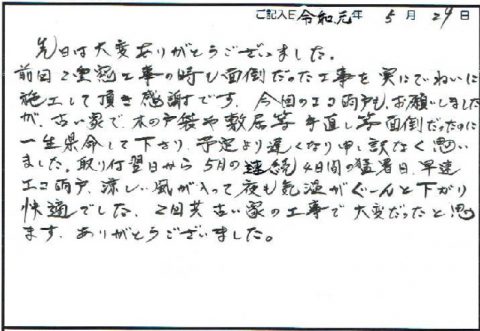 ご記入日 令和元年 5月29日
先日は大変ありがとうございました。
前回2重窓工事の時も面倒だった工事を実にていねいに
施工して頂き感謝です。今回のエコ雨戸も、お願いしました
が、古い家で、木の戸袋や敷居等手直し等面倒だったのに
一生県命して下さり、予定より遅くなり申し訳なく思い
ました。取り付翌日から5月の連続4日間の猛暑日、早速
エコ雨戸、涼しい風が入って夜も気温がぐーんと下がり
快適でした、2回共古い家の工事で大変だったと思い
ます、ありがとうございました。